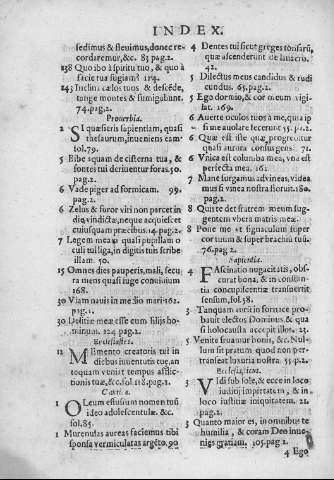 INDEX.
sedimus & fleuimus, donec re-
cordaremur, &c. 83 pag.2.
138 Quo ibo à spiritu tuo, & quo à
facie tua fugiam? 114.
143 Inclina cælos tuos & descēde,
tange montes & fumigabunt.
74. pag.2.
Prouerbia.
2 SI quæsieris sapientiam, quasi
thesaurum, inuenies eam
fol.79.
5 Bibe aquam de cisterna tua, &
fontes tui deriuentur foras. 50.
pag.2.
6 Vade piger ad formicam. 99.
pag.2.
6 Zelus & furor viri non parcet in
die vindictæ, neque acquiescet
cuiusquam præcibus. 14. pag.2.
7 Legem meam quasi pupillam o
culi tui liga, in digitis tuis scribe
illam. 50.
15 Omnes dies pauperis, mali, secu
ra mens quasi iuge conuiuium
168.
30 Viam nauis in medio mari. 162.
pag.1.
30 Delitiæ meæ esse cum filijs ho-
minum. 124 pag.2.
Ecclesiastes.
12 MEmento creatoris tui in
diebus iuuentutis tuæ, an
toquam veniat tempus afflic-
tionis tuæ, &c. fol.118. pag.1.
Canti.c.
1 OLeum effusum nomen tuū
ideo adolescentulæ. &c.
fol.85.
1 Murenulas aureas faciemus tibi
sponsa vermiculatas argēto. 90
4 Dentes tui sicut greges tonsarū,
quæ ascenderunt de lauacro.
42.
5 Dilectus meus candidus & rudi
cundus. 65. pag.2.
5 Ego dormio, & cor meum vigi
lat. 169.
6 Auerte oculos tuos à me, quia ip
si me auolare fecerunt 55. p.2.
6 Quæ est iste quæ progreditur
quasi aurora consurgens. 71.
6 Vnica est columba mea, vna est
perfecta mea. 161
7 Mane surgamus ad vineas, videa
mus si vinea nostra floruit. 180.
pag.2.
8 Quis te det fratrem meum sug-
gentem vbera matris meæ.
8 Pone me vt signaculum super
cor tuum & super brachiū tuū.
76. pag 2.
Sapientia.
4 FAscinatio nugacitatis, obs-
curat bona, & in constan-
tia concupiscentiæ transuertit
sensum, fol.58.
3 Tanquam aurū in fornace pro-
bauit electos Dominus & qua
si holocausta accepit illos. 23.
5 Venite fruamur bonis, &c. Nul-
lum sit pratum quod non per-
transeat luxuria nostra 55. p.2.
Ecclesiasticus.
3 VIdi sub sole, & ecce in loco
iudicij impietatem, & in
loco iustitiæ iniquitatem. 21.
pag.2.
3 Quanto maior es, in omnibus te
humilia, & coram Deo inue-
nies gratiam. 105. pag 2.
4 Ego